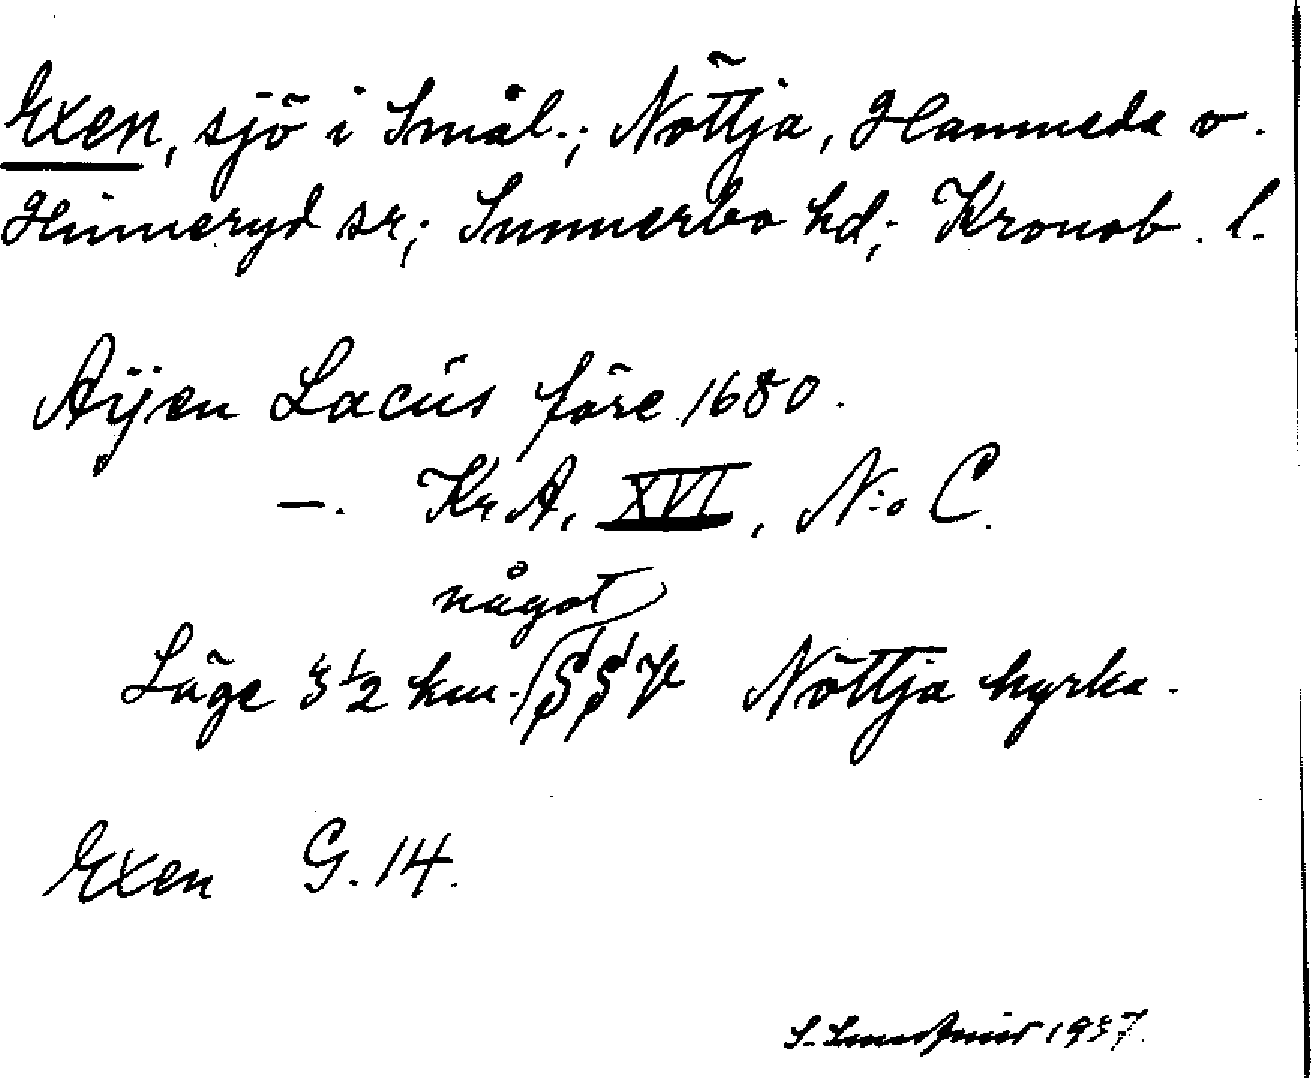 Exen, sjö i Smål.; Nöttja, Hamneda o.
Hinneryd sr; Sunnerbo hd; Kronob. l.
Aÿen Lacus före 1680.
—. KrA, XVI, N:o C.
något
Läge 3 1/2 km. SSV Nöttja kyrka.
Exen G. 14.
1937.